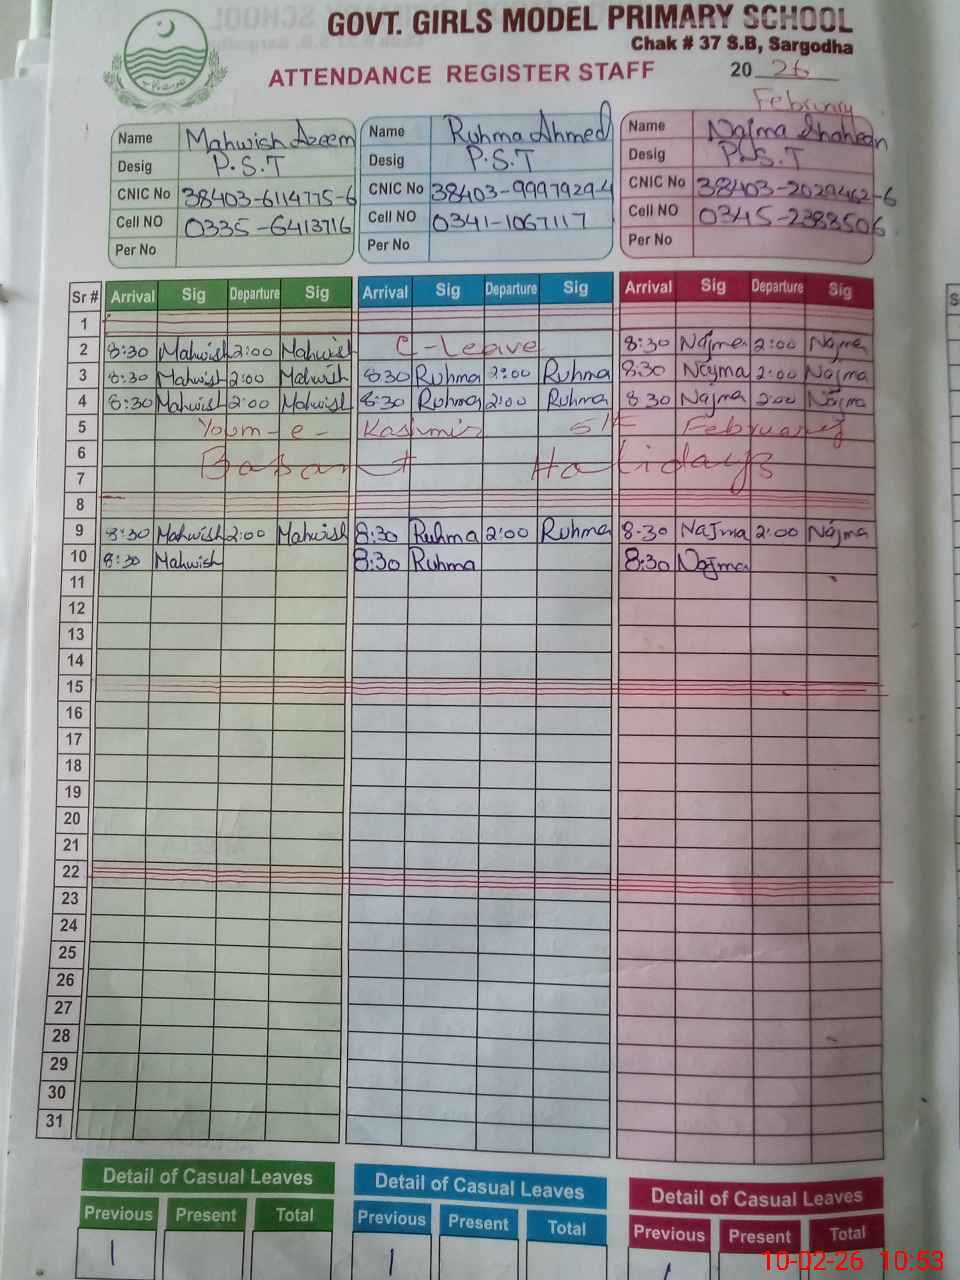 GOVT. GIRLS MODEL PRIMARY SCHOOL
Chak # 37 S.B, Sargodha
ATTENDANCE REGISTER STAFF 2026
February
Name Mahwish Azeem Name Ruhma Ahmed Name Najma Shaheen
Desig P.S.T Desig P.S.T Desig P.S.T
CNIC No 38403-6114775-6 CNIC No 38403-99979294 CNIC No 38403-2029462-6
Cell NO 0335-6413716 Cell NO 0341-1067117 Cell NO 0345-2383506
Per No Per No Per No
Sr # Arrival Sig Departure Sig Arrival Sig Departure Sig Arrival Sig Departure Sig
1
2 8:30 Mahwish 2:00 Mahwish C-Leave 8:30 Najma 2:00 Najma
3 8:30 Mahwish 2:00 Mahwish 830 Ruhma 2:00 Ruhma 830 Najma 2:00 Najma
4 8:30 Mahwish 2:00 Mahwish 8:30 Ruhma 2:00 Ruhma 8 30 Najma 2:00 Najma
5 Youm-e-Kashmir 5th February
6 Basant Holidays
7
8
9 8:30 Mahwish 2:00 Mahwish 8:30 Ruhma 2:00 Ruhma 8-30 Najma 2:00 Najma
10 8:30 Mahwish 8:30 Ruhma 8:30 Najma
11
12
13
14
15
16
17
18
19
20
21
22
23
24
25
26
27
28
29
30
31
Detail of Casual Leaves Detail of Casual Leaves Detail of Casual Leaves
Previous Present Total Previous Present Total Previous Present Total
1 1 1
10-02-26 10:53